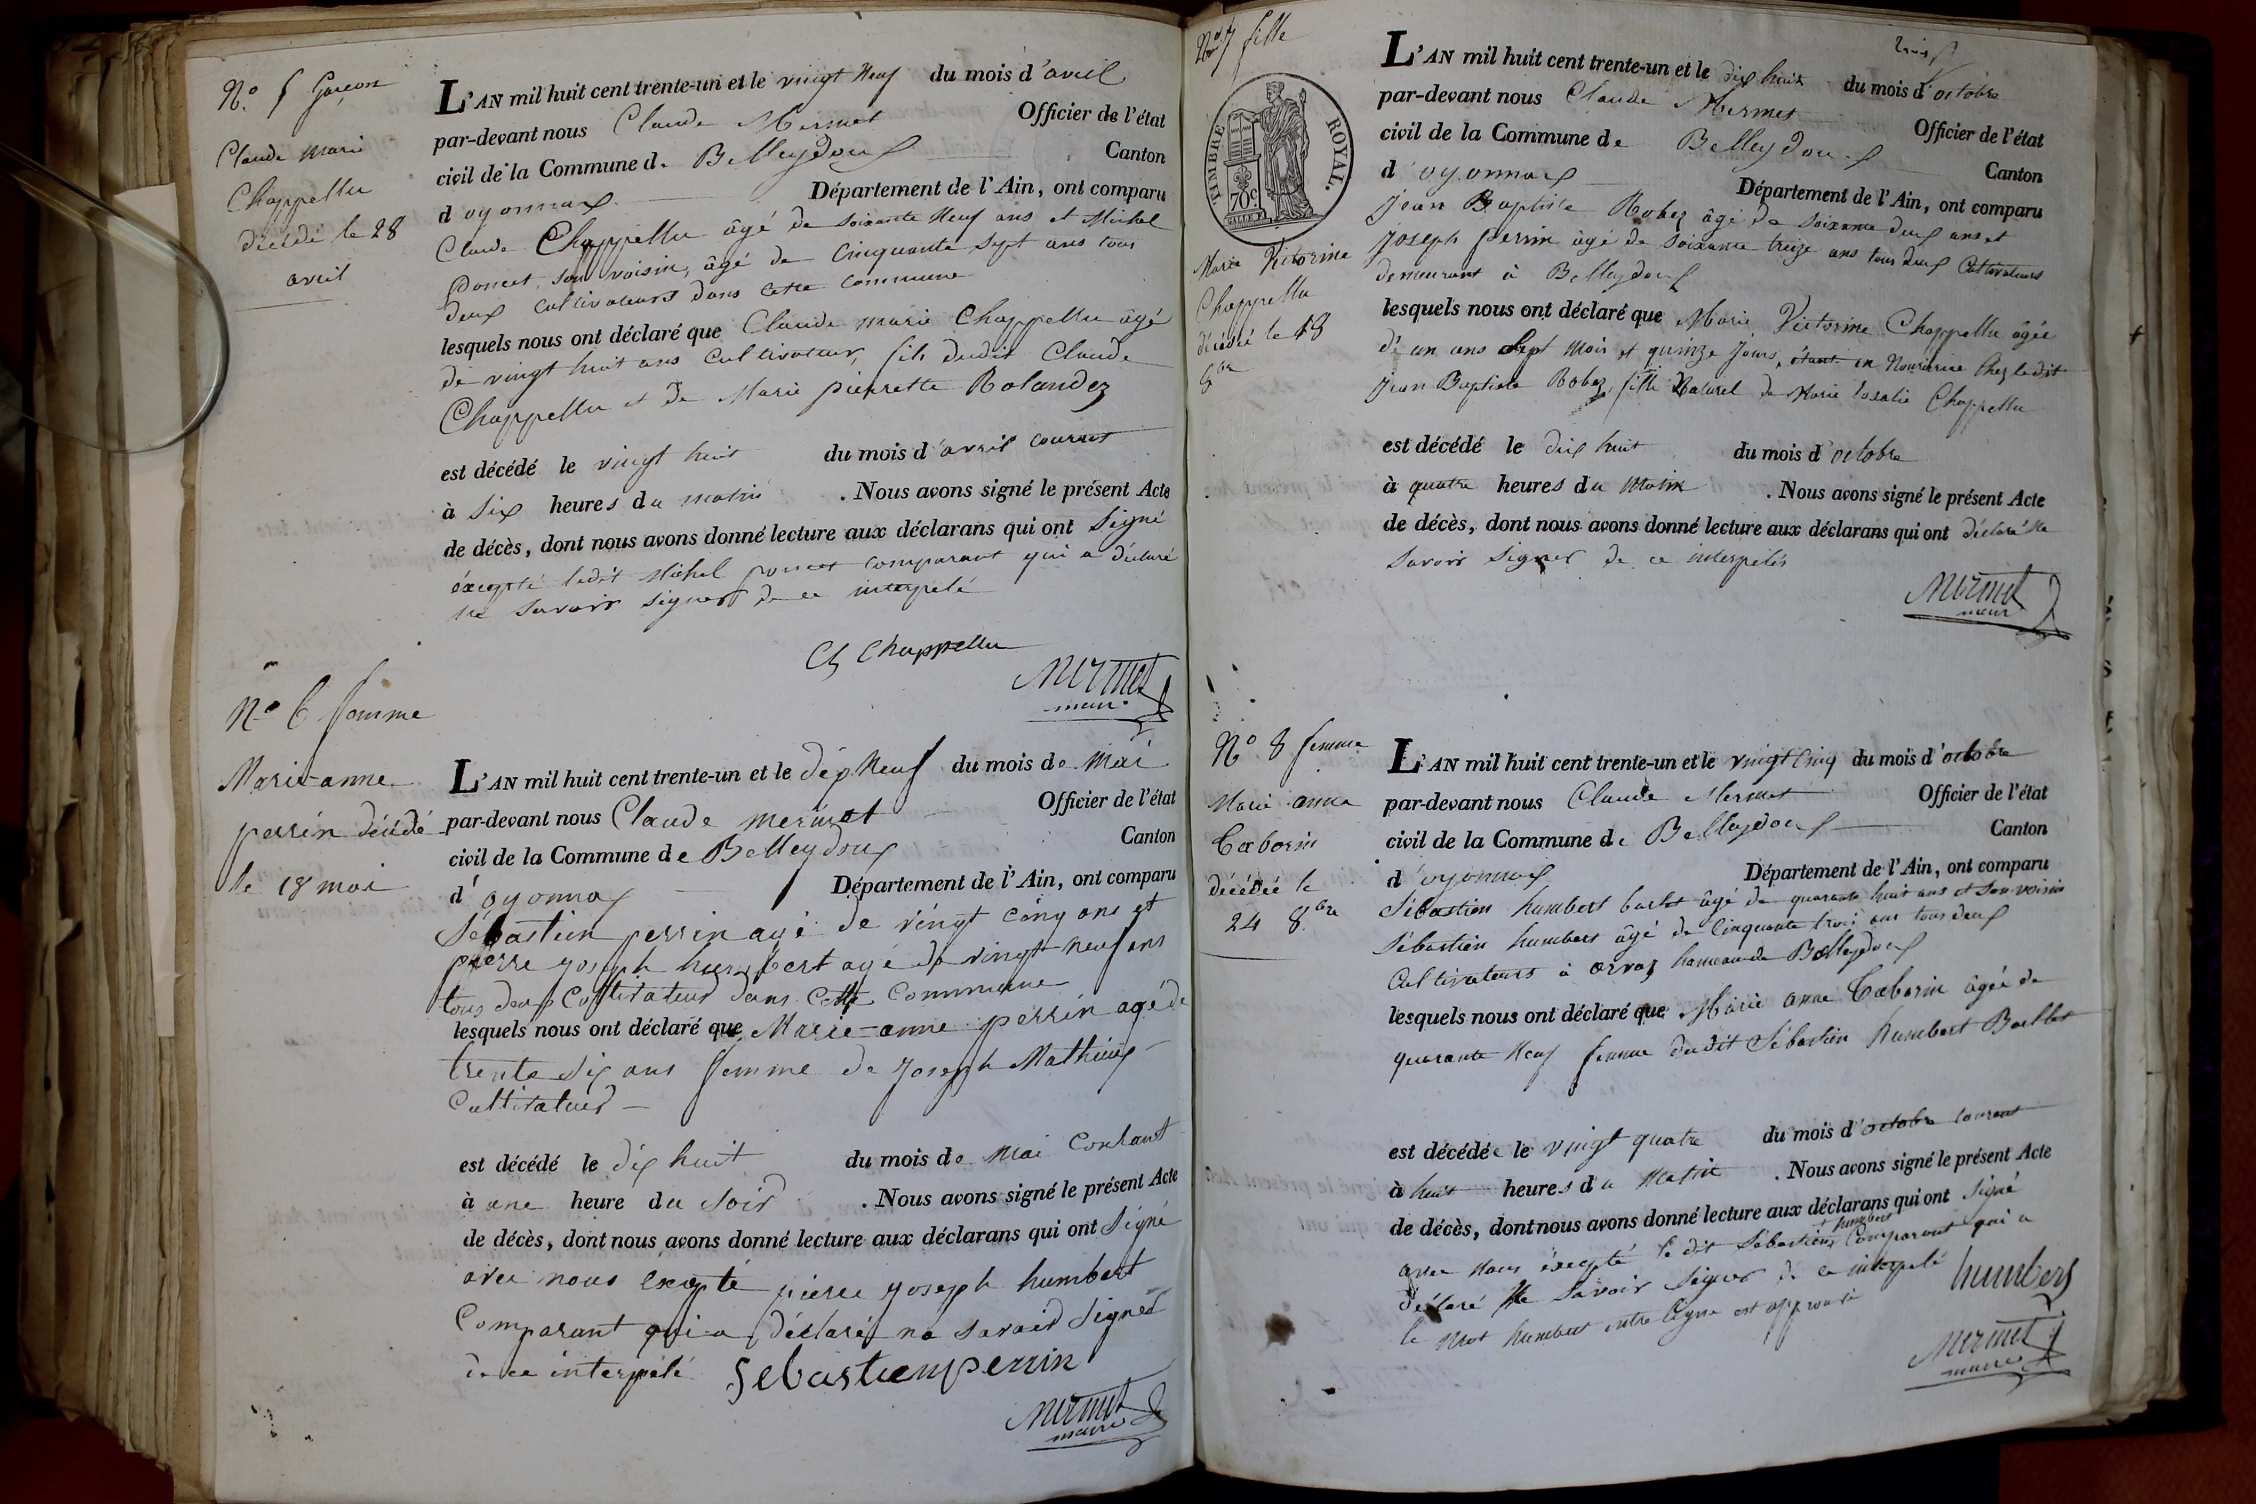 N.o 5 Garçon
Claude Marie
Chappellu
décédé le 28
avril
L'AN mil huit cent trente-un et le vingt Neuf du mois d'avril
par-devant nous Claude Mermet Officier de l'état
civil de la Commune de Belleydoux Canton
d'oyonnax Département de l'Ain, ont comparu
Claude Chappellu âgé de soixante Neuf ans et Michel
poncet son voisin, âgé de Cinquante sept ans tous
deux cultivateurs dans cette commune
lesquels nous ont déclaré que Claude marie Chappellu âgé
de vingt huit ans Cultivateur, fils dudit Claude
Chappellu et de Marie pierrette Rolandez
est décédé le vingt huit du mois d'avril courant
à Six heures du matin . Nous avons signé le présent Acte
de décès, dont nous avons donné lecture aux déclarans qui ont Signé
éxcepté ledit Michel poncet comparant qui a déclaré
ne Savoir signer de ce interpelé
Ch Chappellu
Mermet
maire
N.o 6 femme
Marie-anne
perrin décédé
le 18 mai
L'AN mil huit cent trente-un et le dix Neuf du mois de Mai
par-devant nous Claude mermet Officier de l'état
civil de la Commune de Belleydoux Canton
d'oyonnax Département de l'Ain, ont comparu
Sébastien perrin agé de vingt cinq ans et
pierre joseph humbert agé de vingt-neuf ans
tous deux Cultivateur dans Cette Commune
lesquels nous ont déclaré que Marie-anne perrin agé de
trente Six ans femme de joseph Mathieux
Cultivateur
est décédé le dix huit du mois de Mai Courant
à une heure du Soir . Nous avons signé le présent Acte
de décès, dont nous avons donné lecture aux déclarans qui ont Signé
avec nous excepté pierre joseph humbert
Comparant qui a déclaré ne Savoir Signer
de ce interpelé Sebastien perrin
Mermet
maire
N.o 7 fille
TIMBRE ROYAL.
70c.
Marie Victorine
Chappellu
décédé le 18
8bre
L'AN mil huit cent trente-un et le dix huit du mois d'octobre
par-devant nous Claude Mermet Officier de l'état
civil de la Commune de Belleydoux Canton
d'oyonnax Département de l'Ain, ont comparu
Jean Baptiste Robez âgé de soixante deux ans et
Joseph perrin âgé de soixante treize ans tous deux Cultivateurs
demeurant à Belleydoux
lesquels nous ont déclaré que Marie Victorine Chappellu âgée
d'un ans Sept Mois et quinze Jours, étant en Nourrice Chez ledit
Jean Baptiste Robez, fille Naturel de Marie rosalie Chappellu
est décédé le dix huit du mois d'octobre
à quatre heures du Matin . Nous avons signé le présent Acte
de décès, dont nous avons donné lecture aux déclarans qui ont déclaré Ne
Savoir Signer de ce interpelés
Mermet
maire
N.o 8 femme
Marie anne
Caborin
décédée le
24 8bre
L'AN mil huit cent trente-un et le vingt Cinq du mois d'octobre
par-devant nous Claude Mermet Officier de l'état
civil de la Commune de Belleydoux Canton
d'oyonnax Département de l'Ain, ont comparu
Sébastien humbert âgé de quarante huit ans et son voisin
Sébastien humbert âgé de Cinquante trois ans tous deux
Cultivateurs à orvaz hameau de Belleydoux
lesquels nous ont déclaré que Marie anne Caborin âgée de
quarante Neuf femme dudit Sébastien humbert Baillet
est décédée le vingt quatre du mois d'octobre courant
à huit heures du Matin . Nous avons signé le présent Acte
de décès, dont nous avons donné lecture aux déclarans qui ont Signé
humbert
avec Nous éxcepté le dit Sébastien Comparant qui a
déclaré Ne Savoir Signer de ce interpelé humbert
le Mot humbert entre ligne est approuvé
Mermet
maire